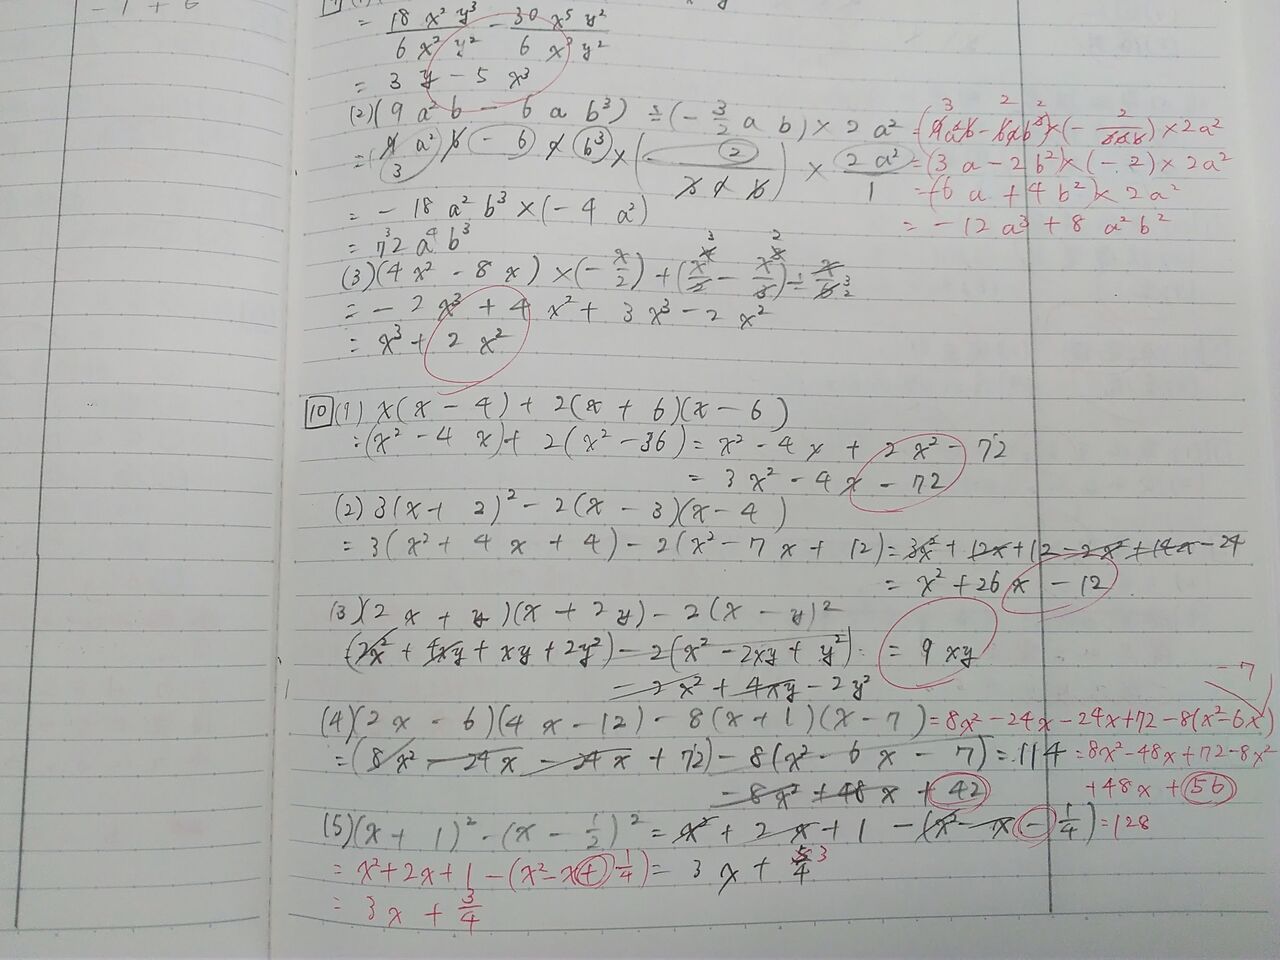 -1+6
= 18x²y³/6x²y² - 30x⁵y²/6x²y²
= 3y - 5x³
(2)(9a²b - 6ab³) ÷ (-3/2 ab) × 2a² = (9a²b - 6ab³) × (-2/3ab) × 2a²
= (9a²b - 6ab³) × (-2/3ab) × 2a²/1 = (3a - 2b²) × (-2) × 2a²
= -18a²b³ × (-4a²) = (-6a + 4b²) × 2a²
= 72a⁴b³ = -12a³ + 8a²b²
(3)(4x² - 8x) × (-x/2) + (x⁴/2 - x³/3) ÷ x/6
= -2x³ + 4x² + 3x³ - 2x²
= x³ + 2x²
10 (1) x(x - 4) + 2(x + 6)(x - 6)
= (x² - 4x) + 2(x² - 36) = x² - 4x + 2x² - 72
= 3x² - 4x - 72
(2) 3(x + 2)² - 2(x - 3)(x - 4)
= 3(x² + 4x + 4) - 2(x² - 7x + 12) = 3x² + 12x + 12 - 2x² + 14x - 24
= x² + 26x - 12
(3)(2x + y)(x + 2y) - 2(x - y)²
(2x² + 4xy + xy + 2y²) - 2(x² - 2xy + y²) = 9xy
- 2x² + 4xy - 2y²
-7
(4)(2x - 6)(4x - 12) - 8(x + 1)(x - 7) = 8x² - 24x - 24x + 72 - 8(x² - 6x)
= (8x² - 24x - 24x + 72) - 8(x² - 6x - 7) = 114 = 8x² - 48x + 72 - 8x²
- 8x² + 48x + 42 + 48x + 56
(5)(x + 1)² - (x - 1/2)² = x² + 2x + 1 - (x² - x - 1/4) = 128
= x² + 2x + 1 - (x² - x + 1/4) = 3x + 5/4 3
= 3x + 3/4